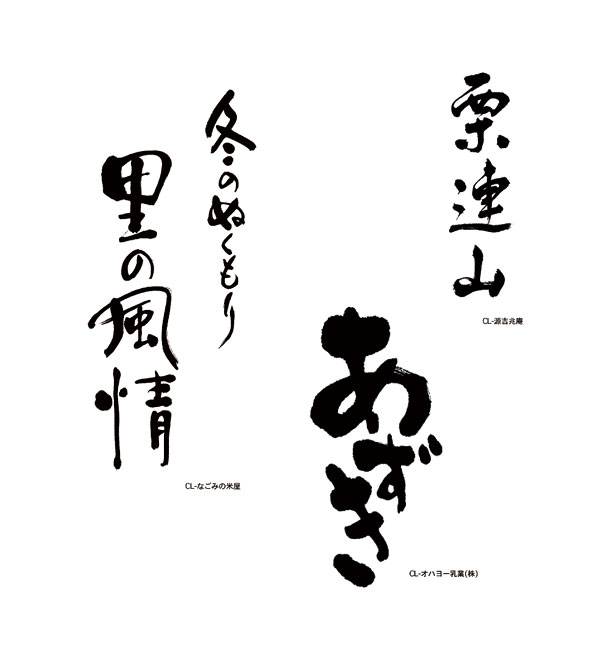 栗連山
CL-源吉兆庵
あずき
CL-オハヨー乳業(株)
冬のぬくもり
里の風情
CL-なごみの米屋